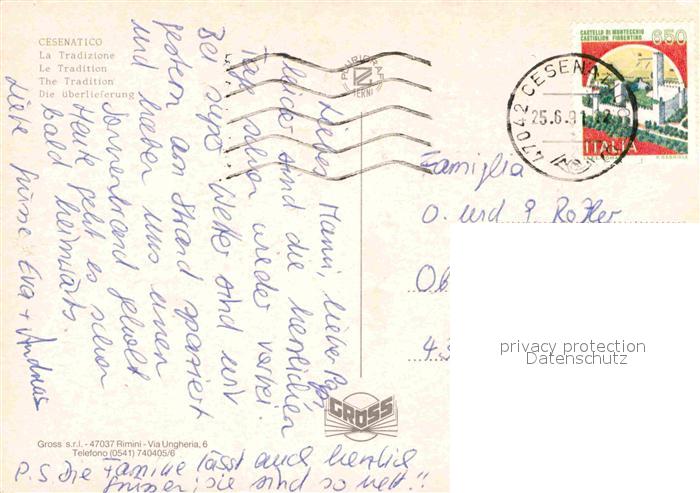 CESENATICO
La Tradizione
Le Tradition
The Tradition
Die überlieferung
PLURIGRAF
TERNI
CASTELLO DI MONTECCHIO
CASTIGLION FIORENTINO
650
ITALIA
47042 CESENA
25.6.9
Liebe Mami, lieber Papi,
leider sind die herrlichen
Tage schon wieder vorbei.
Bei super Wetter sind wir
gestern am Strand spaziert
und haben uns einen
Sonnenbrand geholt.
Heute geht es schon
bald heimwärts.
Liebe Grüsse Eva + Andreas
P.S. Die Familie lässt auch herzlich
grüssen; sie sind so nett!!
Famiglia
O. und P.
Ob
GROSS
Gross s.r.l. - 47037 Rimini - Via Ungheria, 6
Telefono (0541) 740405/6
privacy protection
Datenschutz